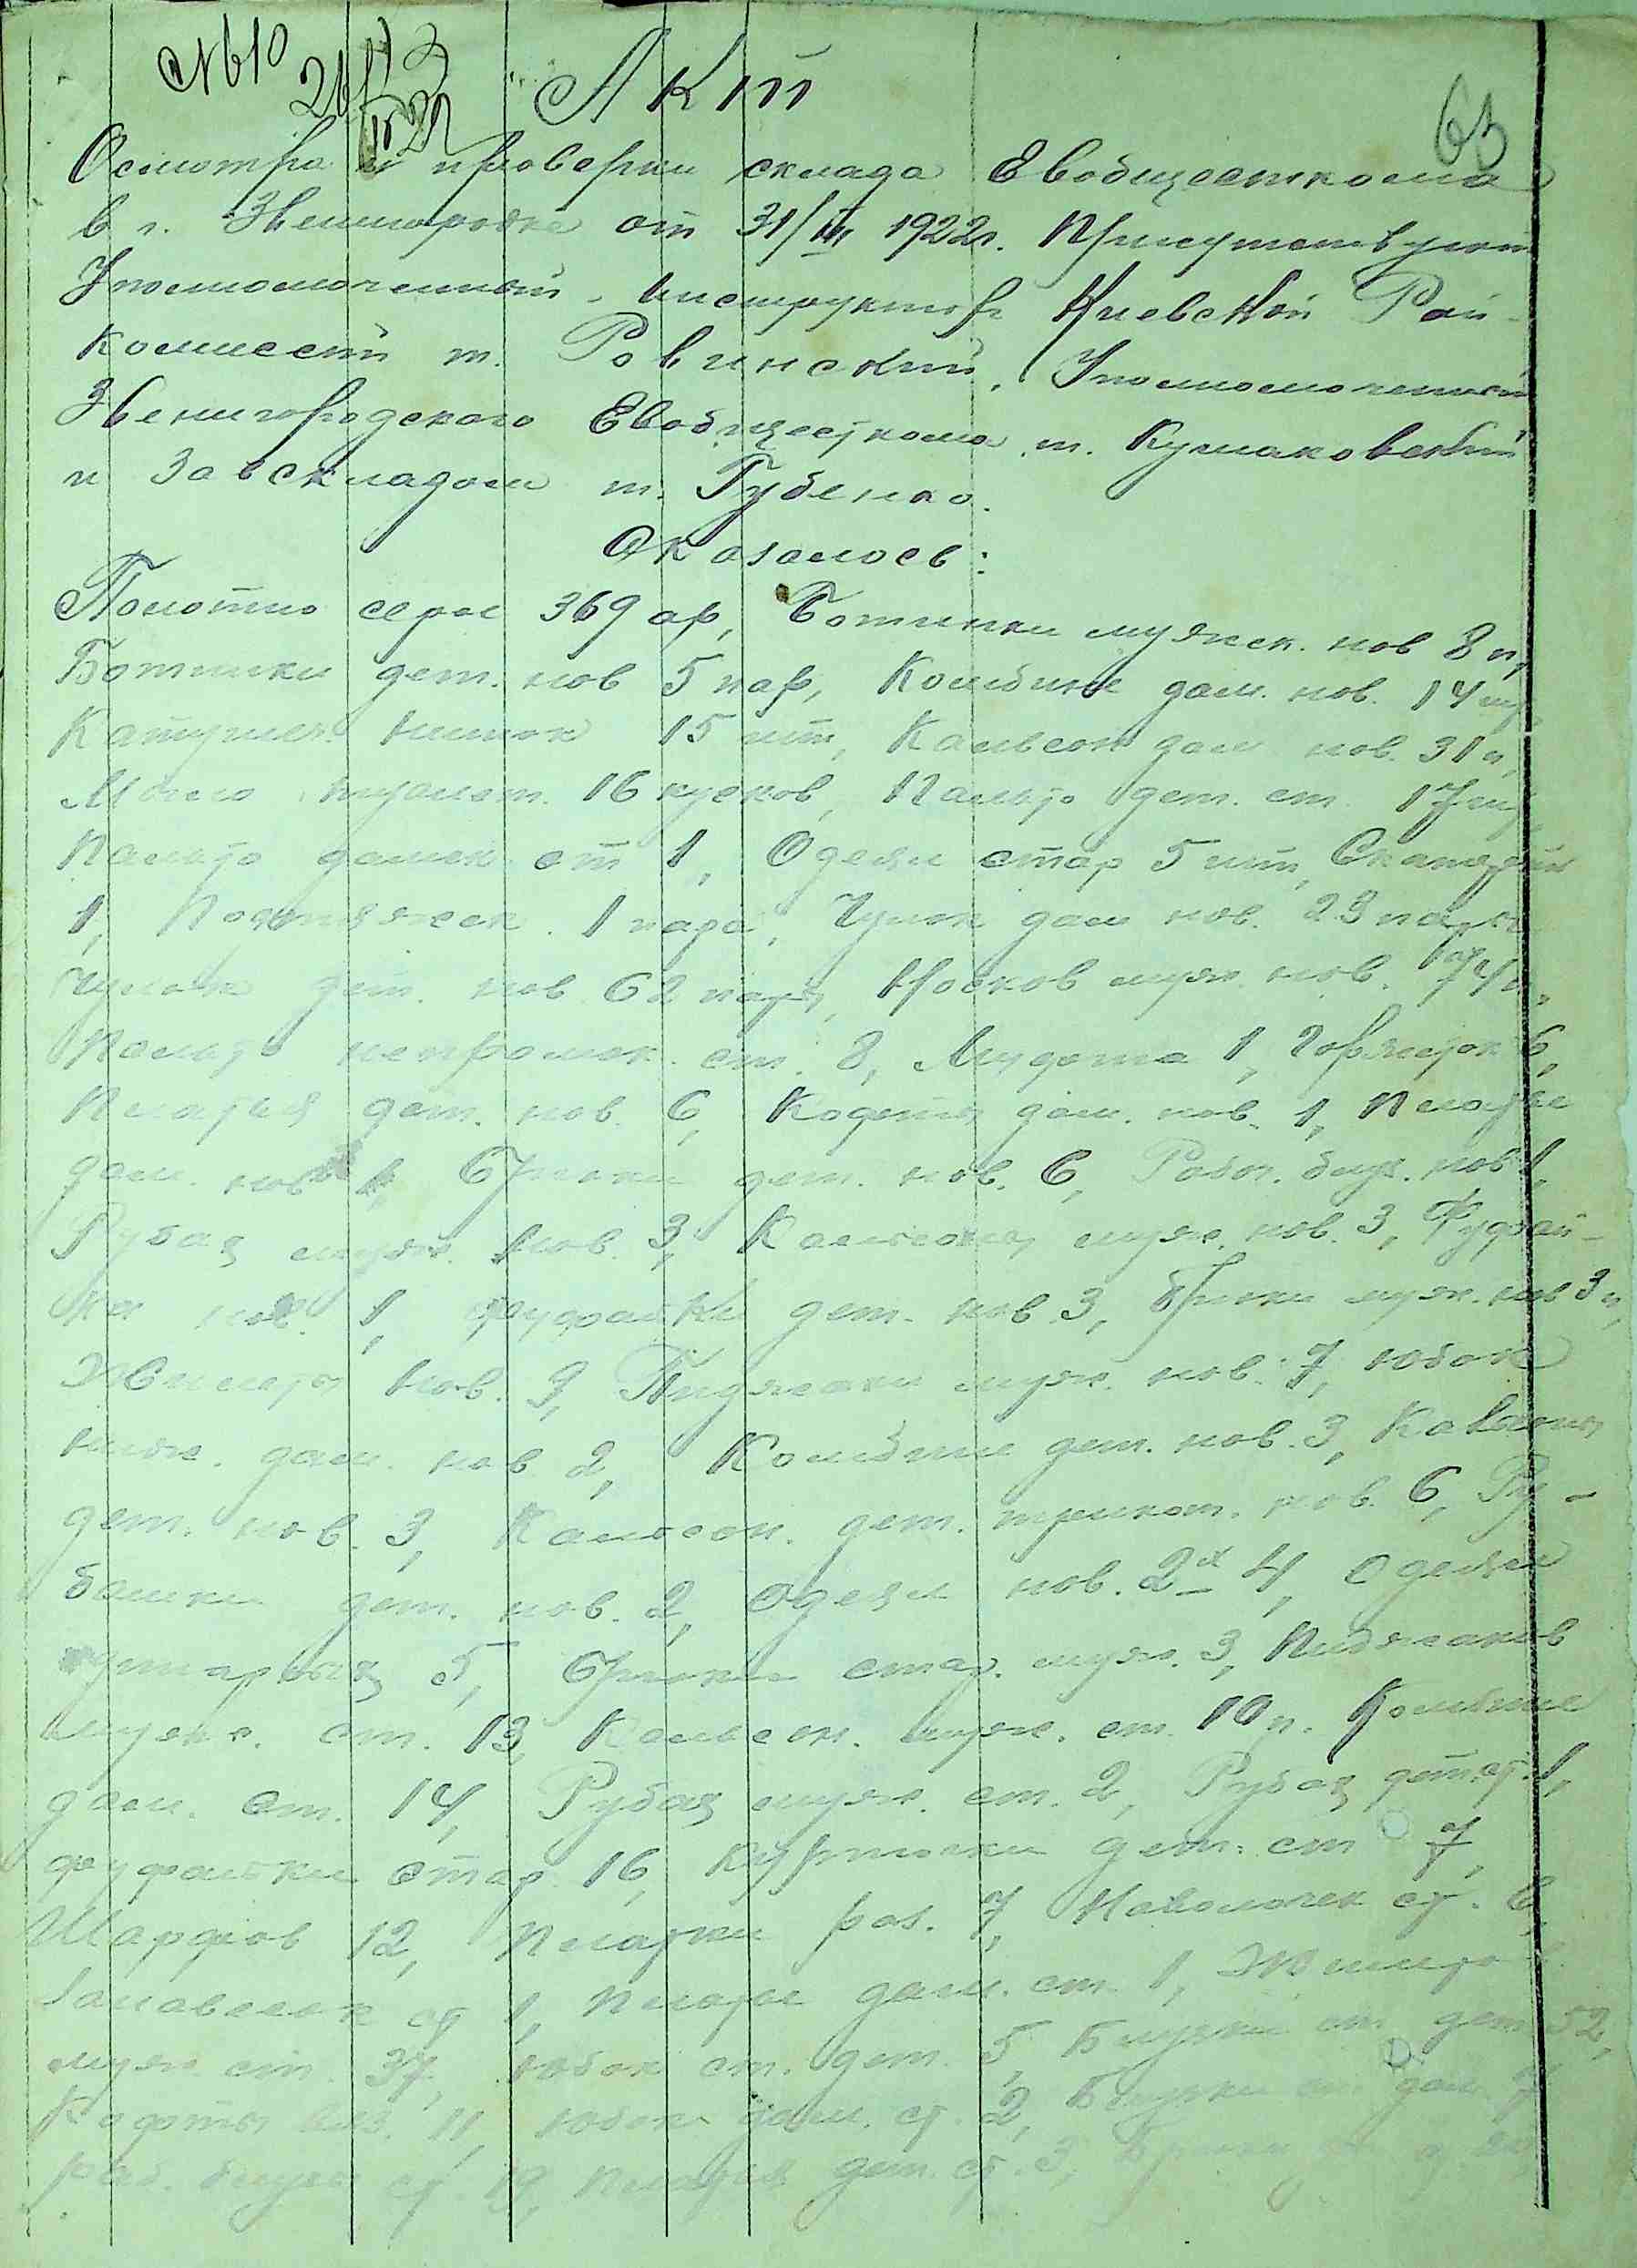 №610
Акт
63
Осмотра и проверки склада Евобщесткома
в г. Звенигородке от 31/III 1922г. Присутствуют
Уполномоченный - инструктор Киевской Рай-
комиссии т. Ровинский, Уполномоченный
Звенигородского Евобщесткома т. Кулаковский
и Завскладом т. Губенко.
Оказалось:
Полотно серое 369 ар, Ботинки мужск. нов 8 п,
Ботинки дет. нов 5 пар, Комбине дам. нов. 14 шт
Катушек ниток 15 шт, Кальсон дам нов. 31 п,
Мыло туалет. 16 кусков, Пальто дет. ст. 17 шт,
Пальто дамск. ст 1, Одеял стар 5 шт, Скатертей
1, Подтяжек. 1 пара, Чулок дам нов. 23 пары
Чулок дет. нов. 62 пары, Носков муж. нов. 74 п,
Пальто непромок. ст. 8, 1, 6,
Платья дет. нов. 6, Кофты дам. нов. 1, Платье
дам. нов Брюки дет. нов. 6, Рабоч. блуз. нов 1,
Рубах муж. нов. 3, Кальсоны муж. нов. 3, Фуфай-
ка нов. 1, фуфайки дет. нов 3, Брюки муж. нов 3 п,
Жилеты нов. 9, Пиджаки муж. нов. 7, Юбок
ниж. дам. нов 2, Комбине дет. нов. 3,
дет. нов. 3, Кальсон. дет. трикот. нов. 6, Ру-
башки дет. нов. 2, Одеял нов. 2х 4, Одеял
5, Брюки стар. муж. 3, Пиджаков
мужс. ст. 13, Кальсон. муж. ст. 10 п. Комбине
дам. ст. 14, Рубах муж. ст. 2, Рубах дет. ст. 1,
фуфайки стар 16, Курточки дет. ст 7,
Шарфов 12, Платки раз. 7, Наволочек ст.
Занавесок ст 1, Платье дам. ст. 1, Жилето
муж. ст. 37, юбок ст. дет. 5, Блузки ст дет 52,
Кофты 11, юбок дам. ст. 2, Блузки ст. дам 7
раб. блузы ст. 19, Платья дет. ст. 3, Брюки